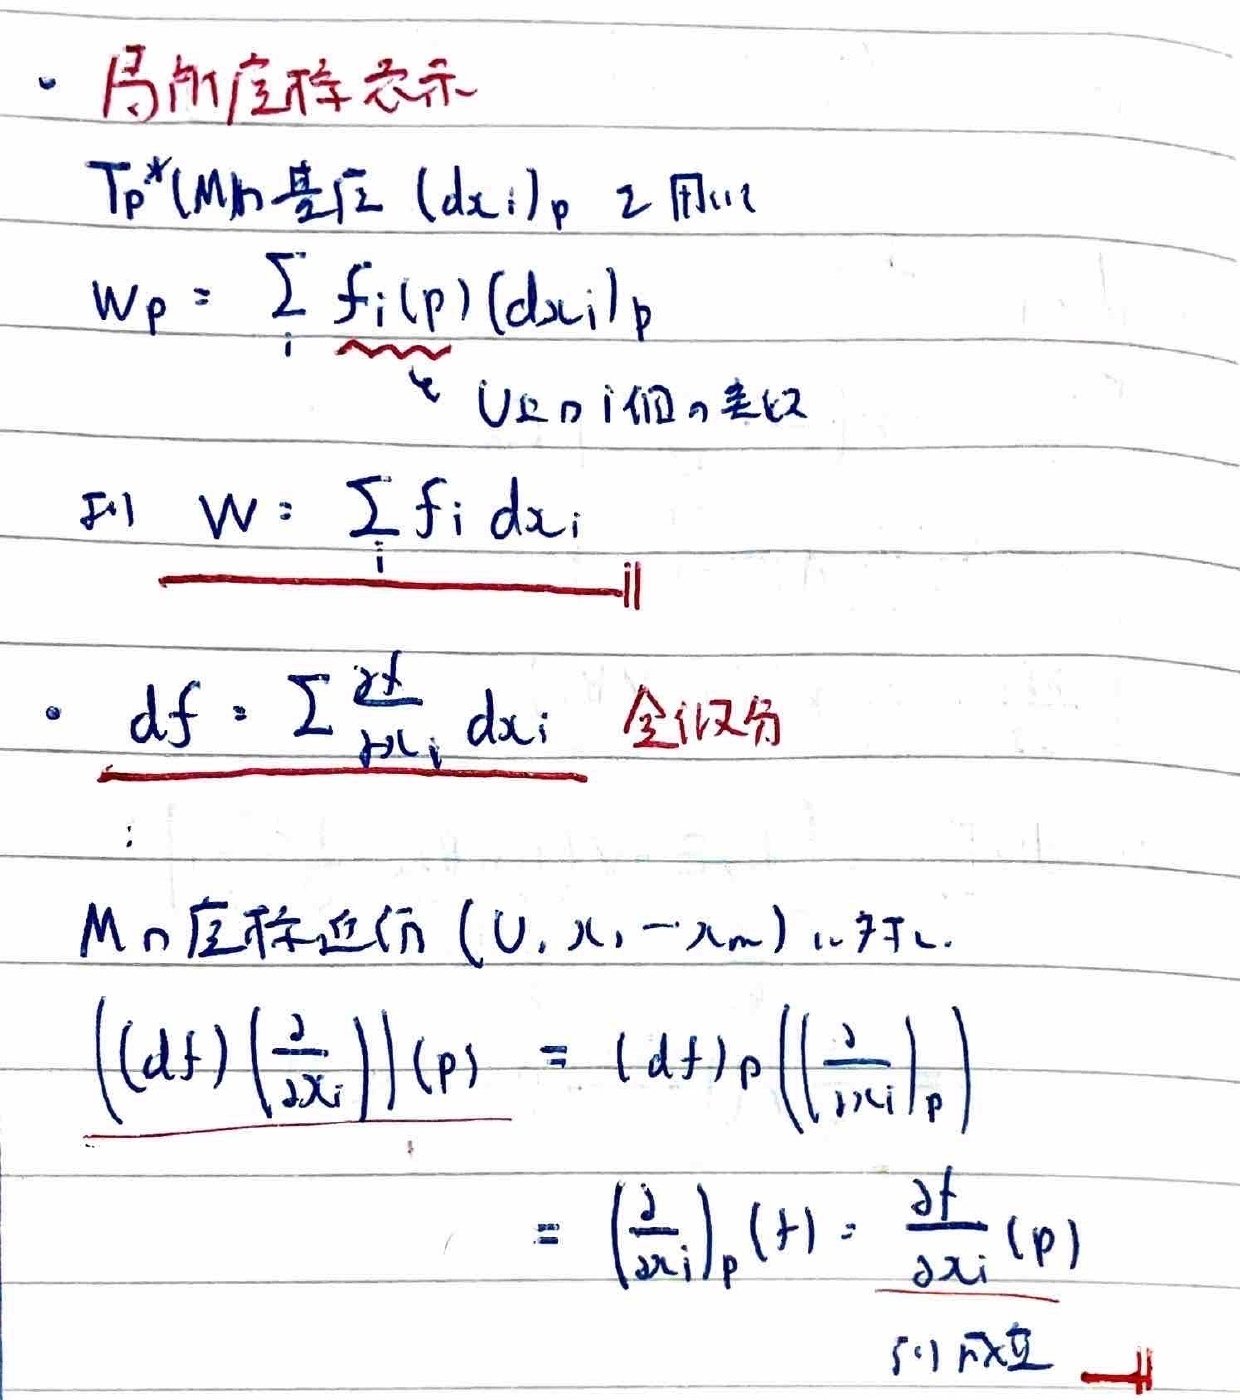 ・局所座標表示
Tp*(M)の基底 (dxi)p を用いて
wp = Σi fi(p)(dxi)p
↳ U上のi個の関数
より w = Σi fi dxi
・df = Σ ∂f/∂xi dxi 全微分
∵
Mの座標近傍 (U, x1 … xm) に対し.
((df)(∂/∂xi))(p) = (df)p((∂/∂xi)p)
= (∂/∂xi)p(f) = ∂f/∂xi(p)
より成立